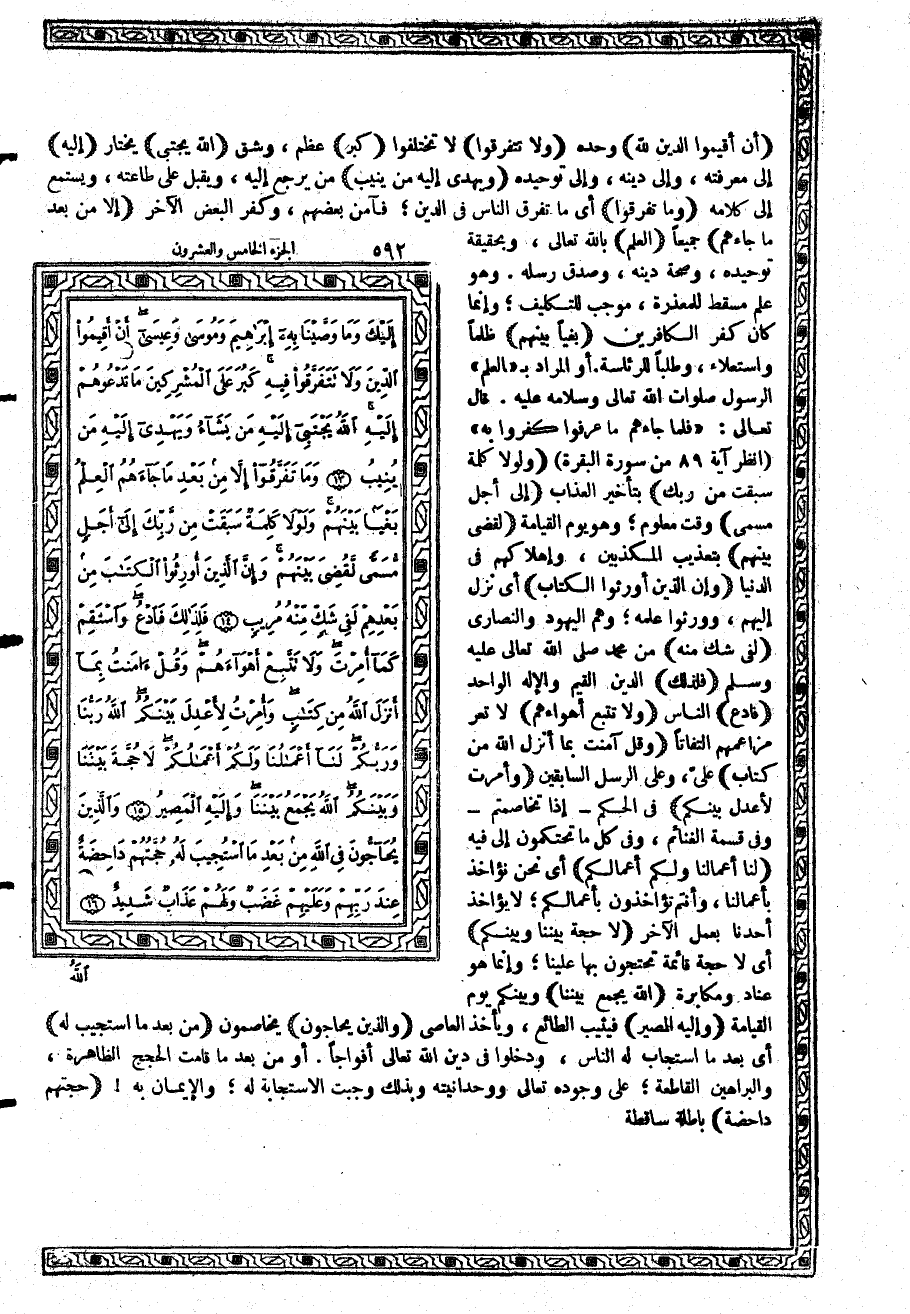 ﴿أن أقيموا الدين لله﴾ وحده ﴿ولا تتفرقوا﴾ لا تختلفوا ﴿كبر﴾ عظم ، وشق ﴿الله يجتبى﴾ يختار ﴿إليه﴾
إلى معرفته ، وإلى دينه ، وإلى توحيده ﴿ويهدى إليه من ينيب﴾ من يرجع إليه ، ويقبل على طاعته ، ويستمع
إلى كلامه ﴿وما تفرقوا﴾ أى ما تفرق الناس فى الدين ؛ فآمن بعضهم ، وكفر البعض الآخر ﴿إلا من بعد
ما جاءهم﴾ جميعاً ﴿العلم﴾ بالله تعالى ، وبحقيقة
توحيده ، وصحة دينه ، وصدق رسله . وهو
علم مسقط للمعذرة ، موجب للتكليف ؛ وإنما
كان كفر الكافرين ﴿بغياً بينهم﴾ ظلماً
واستعلاء ، وطلباً للرئاسة. أو المراد بـ «العلم»
الرسول صلوات الله تعالى وسلامه عليه . قال
تعالى : «فلما جاءهم ما عرفوا كفروا به»
(انظر آية ٨٩ من سورة البقرة) ﴿ولولا كلمة
سبقت من ربك﴾ بتأخير العذاب ﴿إلى أجل
مسمى﴾ وقت معلوم ؛ وهو يوم القيامة ﴿لقضى
بينهم﴾ بتعذيب المكذبين ، وإهلاكهم فى
الدنيا ﴿وإن الذين أورثوا الكتاب﴾ أى نزل
إليهم ، وورثوا علمه ؛ وهم اليهود والنصارى
﴿لفى شك منه﴾ من محمد صلى الله تعالى عليه
وسلم ﴿فلذلك﴾ الدين القيم والإله الواحد
﴿فادع﴾ الناس ﴿ولا تتبع أهواءهم﴾ لا تعر
مزاعمهم التفاتاً ﴿وقل آمنت بما أنزل الله من
كتاب﴾ علىّ ، وعلى الرسل السابقين ﴿وأمرت
لأعدل بينكم﴾ فى الحكم ـ إذا تخاصمتم ـ
وفى قسمة الغنائم ، وفى كل ما تحتكمون إلى فيه
﴿لنا أعمالنا ولكم أعمالكم﴾ أى نحن نؤاخذ
بأعمالنا ، وأنتم تؤاخذون بأعمالكم ؛ لا يؤاخذ
أحدنا بعمل الآخر ﴿لا حجة بيننا وبينكم﴾
أى لا حجة قائمة تحتجون بها علينا ؛ وإنما هو
عناد ومكابرة ﴿الله يجمع بيننا﴾ وبينكم يوم
القيامة ﴿وإليه المصير﴾ فيثيب الطائع ، ويأخذ العاصى ﴿والذين يحاجون﴾ يخاصمون ﴿من بعد ما استجيب له﴾
أى بعد ما استجاب له الناس ، ودخلوا فى دين الله تعالى أفواجاً . أو من بعد ما قامت الحجج الظاهرة ،
والبراهين القاطعة ؛ على وجوده تعالى ووحدانيته وبذلك وجبت الاستجابة له ؛ والإيمان به ! ﴿حجتهم
داحضة﴾ باطلة ساقطة
٥٩٢ الجزء الخامس والعشرون
إِلَيْكَ وَمَا وَصَّيْنَا بِهِۦٓ إِبْرَٰهِيمَ وَمُوسَىٰ وَعِيسَىٰٓ ۖ أَنْ أَقِيمُوا۟
ٱلدِّينَ وَلَا تَتَفَرَّقُوا۟ فِيهِ ۚ كَبُرَ عَلَى ٱلْمُشْرِكِينَ مَا تَدْعُوهُمْ
إِلَيْهِ ۚ ٱللَّهُ يَجْتَبِىٓ إِلَيْهِ مَن يَشَآءُ وَيَهْدِىٓ إِلَيْهِ مَن
يُنِيبُ ﴿١٣﴾ وَمَا تَفَرَّقُوٓا۟ إِلَّا مِنۢ بَعْدِ مَا جَآءَهُمُ ٱلْعِلْمُ
بَغْيًۢا بَيْنَهُمْ ۚ وَلَوْلَا كَلِمَةٌ سَبَقَتْ مِن رَّبِّكَ إِلَىٰٓ أَجَلٍ
مُّسَمًّى لَّقُضِىَ بَيْنَهُمْ ۚ وَإِنَّ ٱلَّذِينَ أُورِثُوا۟ ٱلْكِتَٰبَ مِنۢ
بَعْدِهِمْ لَفِى شَكٍّ مِّنْهُ مُرِيبٍ ﴿١٤﴾ فَلِذَٰلِكَ فَٱدْعُ ۖ وَٱسْتَقِمْ
كَمَآ أُمِرْتَ ۖ وَلَا تَتَّبِعْ أَهْوَآءَهُمْ ۖ وَقُلْ ءَامَنتُ بِمَآ
أَنزَلَ ٱللَّهُ مِن كِتَٰبٍ ۖ وَأُمِرْتُ لِأَعْدِلَ بَيْنَكُمُ ۖ ٱللَّهُ رَبُّنَا
وَرَبُّكُمْ ۖ لَنَآ أَعْمَٰلُنَا وَلَكُمْ أَعْمَٰلُكُمْ ۖ لَا حُجَّةَ بَيْنَنَا
وَبَيْنَكُمُ ۖ ٱللَّهُ يَجْمَعُ بَيْنَنَا ۖ وَإِلَيْهِ ٱلْمَصِيرُ ﴿١٥﴾ وَٱلَّذِينَ
يُحَآجُّونَ فِى ٱللَّهِ مِنۢ بَعْدِ مَا ٱسْتُجِيبَ لَهُۥ حُجَّتُهُمْ دَاحِضَةٌ
عِندَ رَبِّهِمْ وَعَلَيْهِمْ غَضَبٌ وَلَهُمْ عَذَابٌ شَدِيدٌ ﴿١٦﴾
ٱللَّهُ